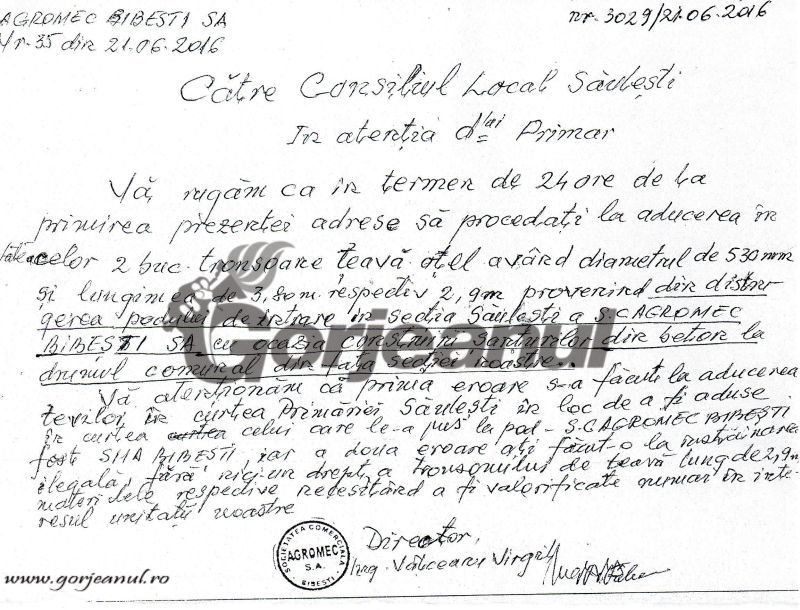 AGROMEC BIBESTI SA
Nr. 35 din 21.06.2016
nr. 3029/21.06.2016
Către Consiliul Local Săulești
In atenția d-lui Primar
Vă rugăm ca în termen de 24 ore de la
primirea prezentei adrese să procedați la aducerea în
celor 2 buc. tronsoane țeavă oțel având diametrul de 530 mm
și lungimea de 3,80 m respectiv 2,9 m provenind din distru
gerea podului de intrare în secția Săulești a S.C AGROMEC
BIBEȘTI SA cu ocazia construirii șanțurilor din beton la
drumul comunal din fața secției noastre.
Vă atenționăm că prima eroare s-a făcut la aducerea
țevilor în curtea Primăriei Săulești în loc de a fi aduse
în curtea curtea celui care le-a pus la pod - S.C AGROMEC BIBEȘTI
fost SMA BIBEȘTI, iar a doua eroare ați făcut-o la înstrăinarea
ilegală, fără nici un drept, a tronsonului de țeavă lung de 2,9 m
materialele respective necesitând a fi valorificate numai în inte-
resul unității noastre
Director,
Ing. Vâlceanu Virgil
SOCIETATEA COMERCIALA
AGROMEC
S.A.
BIBESTI
Gorjeanul
www.gorjeanul.ro